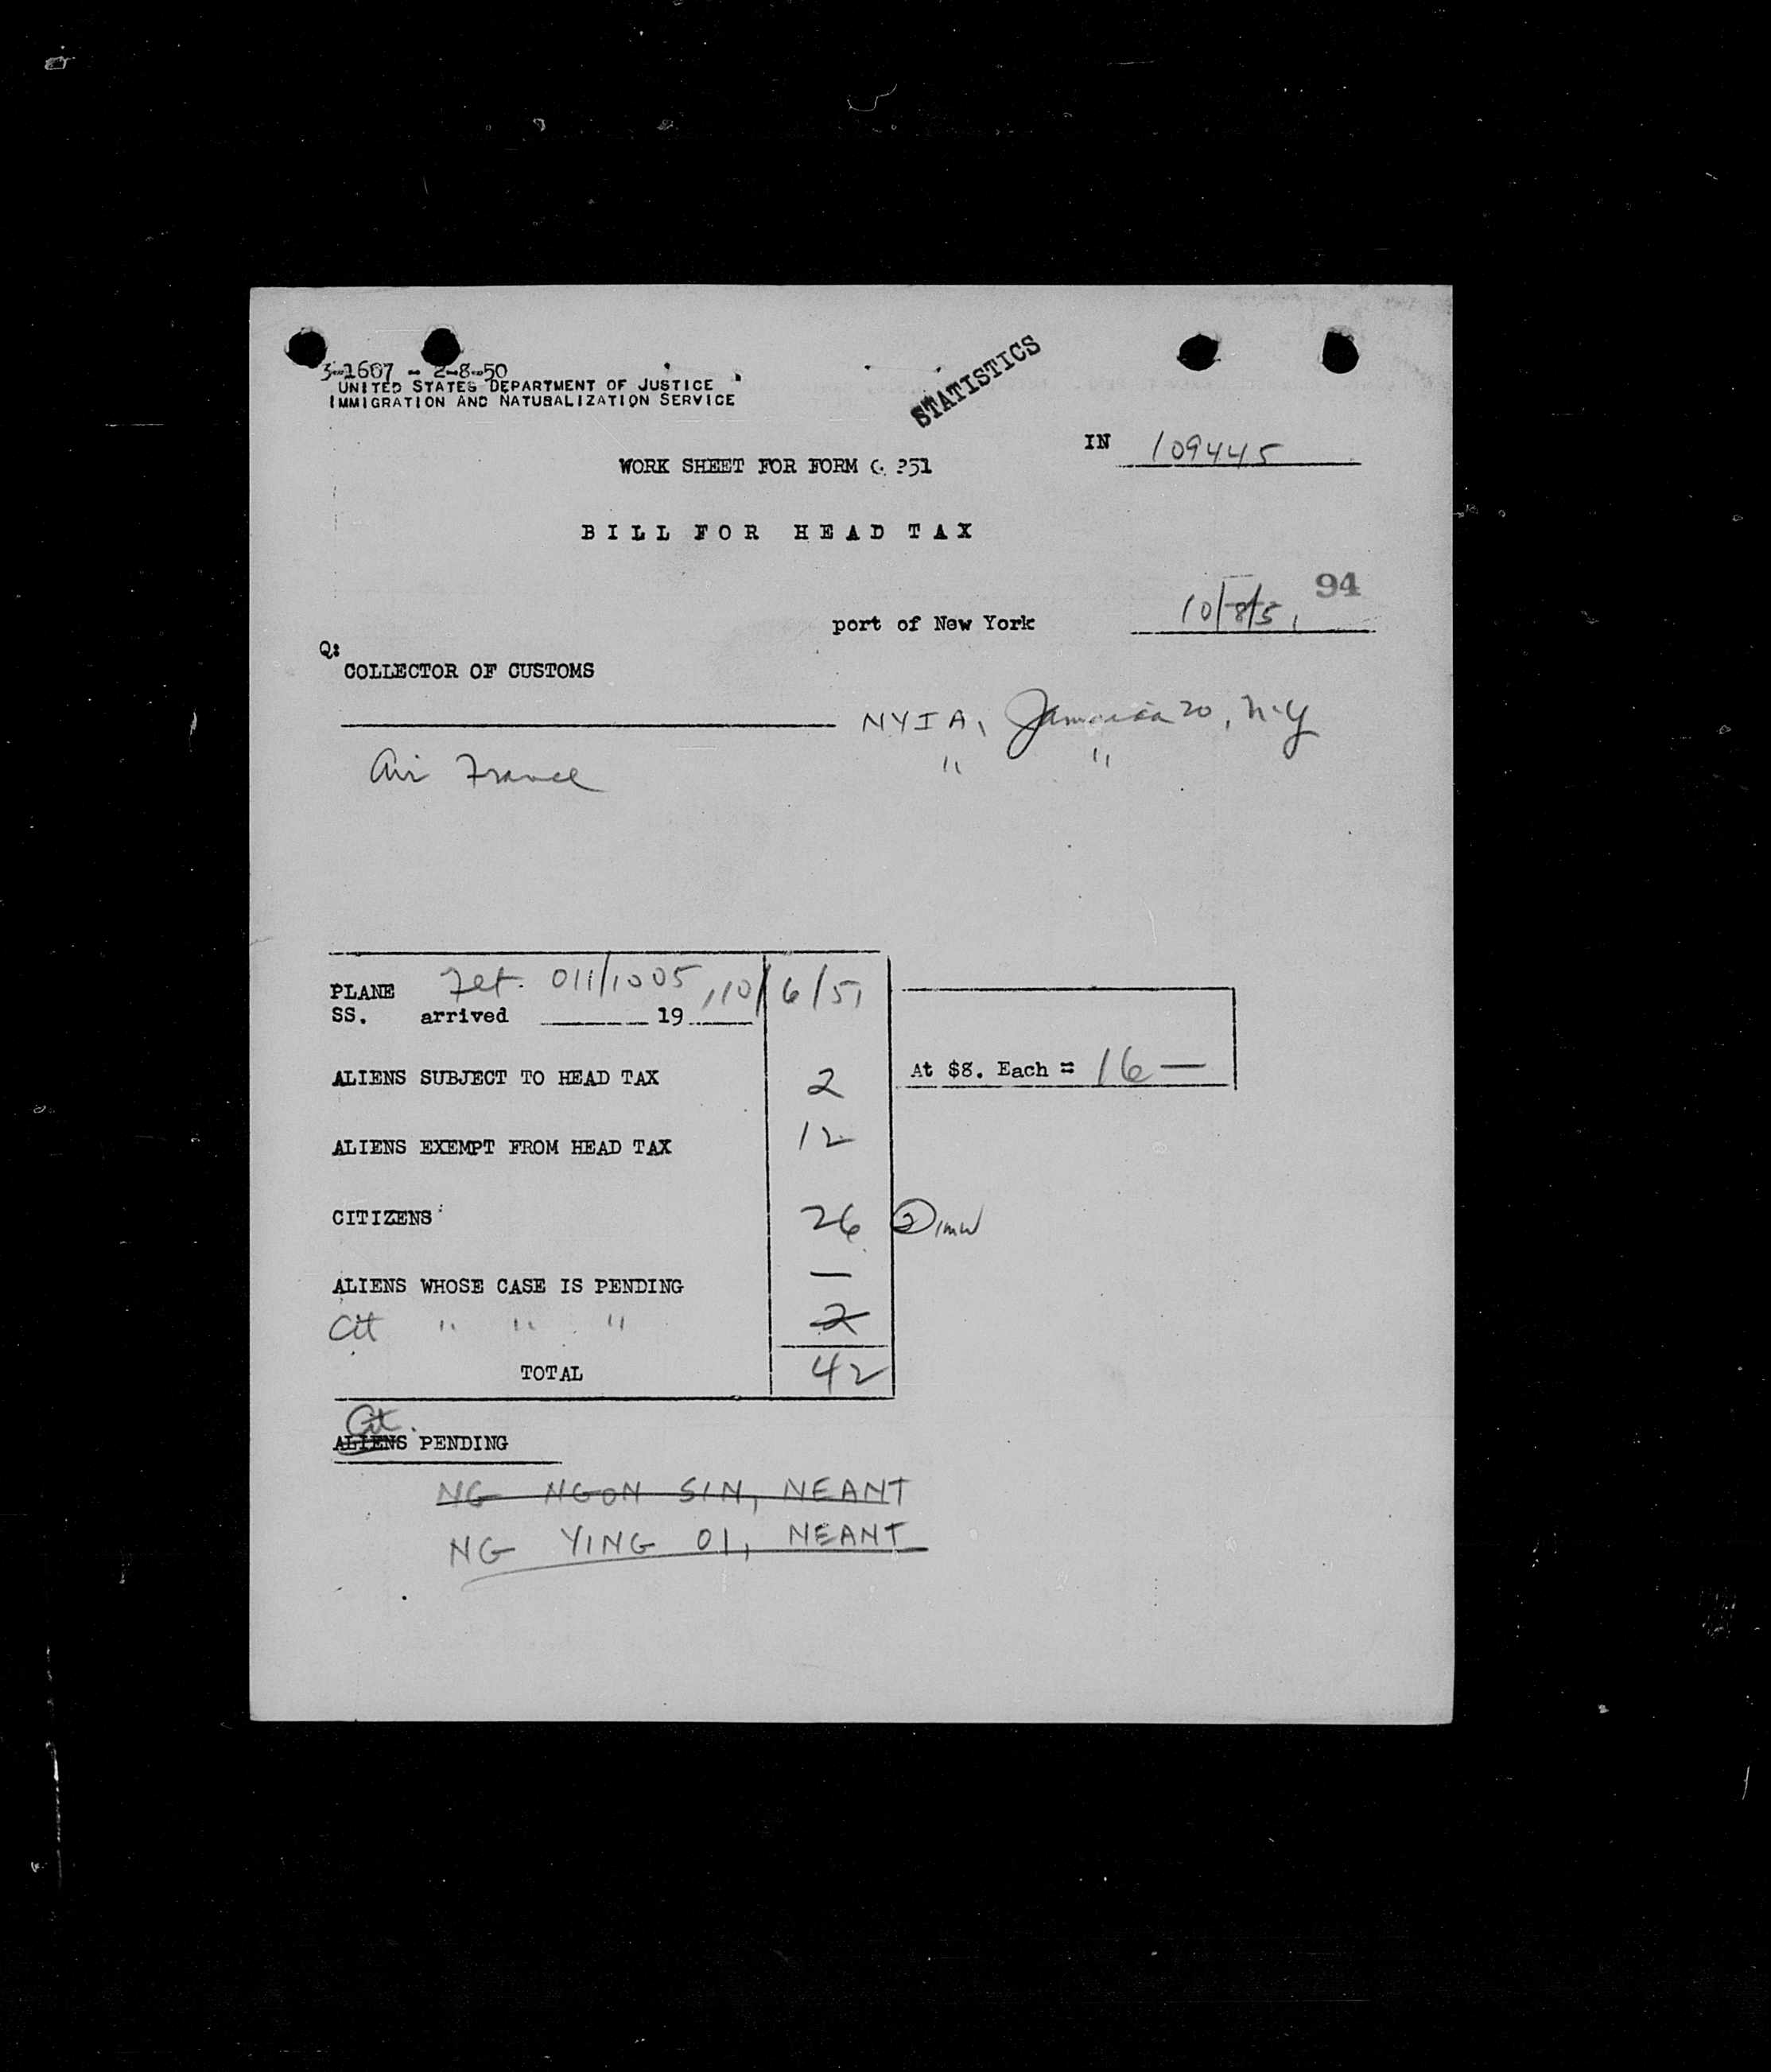 3-1607 - 2-8-50
UNITED STATES DEPARTMENT OF JUSTICE
IMMIGRATION AND NATURALIZATION SERVICE
STATISTICS
IN 109445
WORK SHEET FOR FORM G 351
BILL FOR HEAD TAX
94
port of New York 10/8/51
Q:
COLLECTOR OF CUSTOMS
NYIA, Jamaica 20, N.Y
Air France " "
PLANE 011/1005, 10/6/51
SS. arrived 19
ALIENS SUBJECT TO HEAD TAX 2 At $8. Each = 16 —
ALIENS EXEMPT FROM HEAD TAX 12
CITIZENS 26 2
ALIENS WHOSE CASE IS PENDING —
Cit " " " 2
TOTAL 42
Cit.
ALIENS PENDING
NG NGON SIN, NEANT
NG YING OI, NEANT